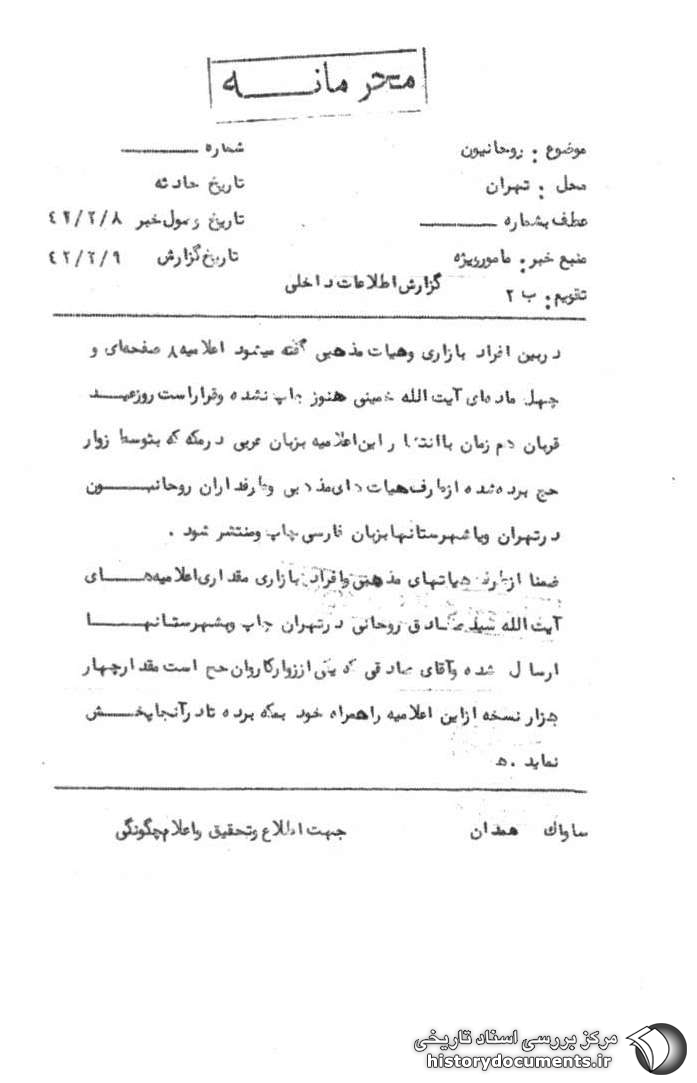 محرمانــــه
موضوع : روحانیون
شماره
محل : تهران
تاریخ حادثه
عطف بشماره
تاریخ وصول خبر ۴۲/۲/۸
منبع خبر : مامور ویژه
تاریخ گزارش ۴۲/۲/۹
تقویم : ب ۲
گزارش اطلاعات داخلی
دربین افراد بازاری وهیات مذهبی گفته میشود اعلامیه ۸ صفحه‌ای و
چهل ماده‌ای آیت الله خمینی هنوز چاپ نشده وقراراست روزعیـــد
قربان هم زمان باانتشار این اعلامیه بزبان عربی درمکه که بتوسط زوار
حج برده شده ازطرف هیات های مذهبی وطرفداران روحانیـــون
درتهران ویاشهرستانهابزبان فارسی چاپ ومنتشر شود .
ضمنا ازطرف هیاتهای مذهبی وافراد بازاری مقداری اعلامیه‌هـــای
آیت الله سیدصادق روحانی درتهران چاپ وبشهرستانهـــا
ارسال شده وآقای صادقی که یکی اززوارکاروان حج است مقدارچهار
هزارنسخه ازاین اعلامیه راهمراه خود بمکه برده تادرآنجاپخـــش
نماید .ه
ساواك همدان
جهت اطلاع وتحقیق واعلام چگونگی
مرکز بررسی اسناد تاریخی
historydocuments.ir